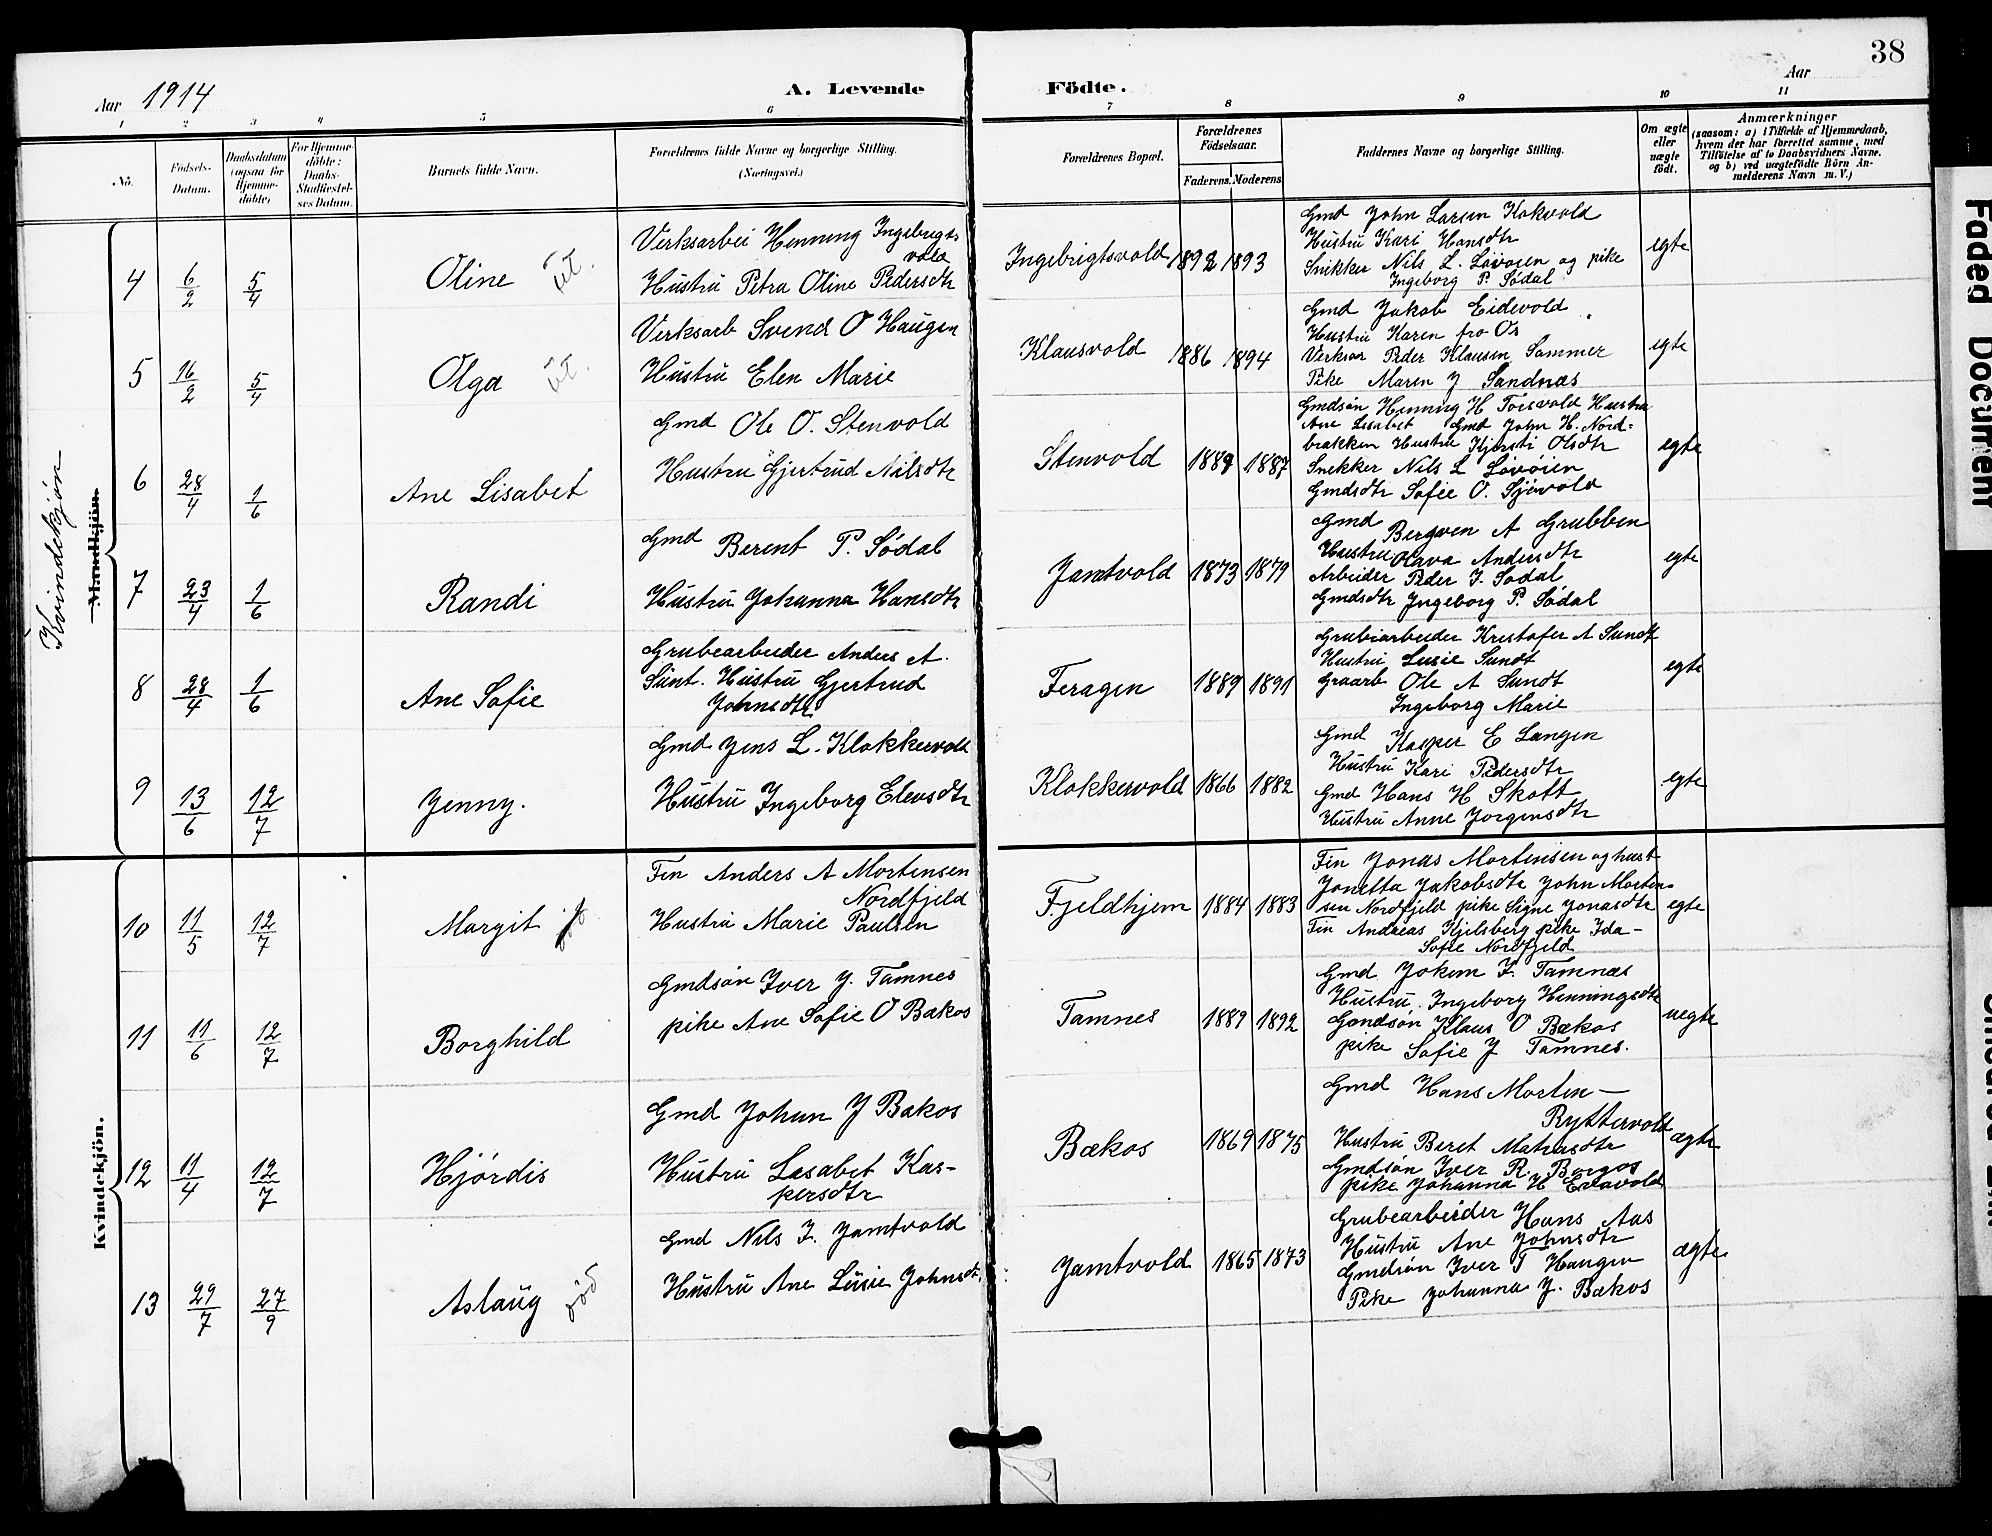 38
Aar 1914
A. Levende Födte.
Aar
1 2 3 4 5 6 7 8 9 10 11
No.
Födsels-
Datum.
Daabsdatum
(ogsaa for
Hjemme-
døbte)
For Hjemme-
døbte:
Daabs-
Stadfæstel-
ses Datum.
Barnets fulde Navn.
Forældrenes fulde Navne og borgerlige Stilling.
(Næringsvei.)
Forældrenes Bopæl.
Forældrenes
Födselsaar.
Faderens. Moderens.
Faddernes Navne og borgerlige Stilling.
Om ægte
eller
uægte
födt.
Anmærkninger
(saasom: a) i Tilfælde af Hjemmedaab,
hvem der har forrettet samme, med
Tilföielse af to Daabsvidners Navne,
og b) ved uægtefödte Börn An-
melderens Navn m. V.)
Kvindekjøn
Mandkjön.
4 6/2 5/4 Oline
Verksarbei Henning Ingebrigts-
vold
Hustru Petra Oline Pedersdtr
Ingebrigtsvold 1892 1893
Gmd John Larsen Kokvold
Hustru Kari Hansdtr
Snikker Nils L. Løvøien og pike
Ingeborg P. Sødal
egte
5 16/2 5/4 Olga
Verksarb Svend O Haugen
Hustru Elen Marie
Klausvold 1886 1894
Gmd Jakob Eidevold
Hustru Karen fra Os
Verksar Peder Klausen Sommer
Pike Maren J Sandnæs
egte
6 28/4 1/6 Ane Lisabet
Gmd Ole O. Stenvold
Hustru Gjertrud Nilsdtr
Stenvold 1889 1887
Gmdsøn Henning H Torsvold Hustru
Ane Lisabet Gmd John H. Nord-
brækken Hustru Kjersti Olsdtr
Snekker Nils L Løvøien
Gmdsdtr Sofie O. Sjøvold
egte
7 23/4 1/6 Randi
Gmd Berent P. Sødal
Hustru Johanna Hansdtr
Jamtvold 1873 1879
Gmd Bergsven A Grubben
Hustru Olava Andersdtr
Arbeider Peder J. Sødal
Gmdsdtr Ingeborg P. Sødal
egte
8 28/4 1/6 Ane Sofie
Grubearbeider Anders A.
Sunt. Hustru Gjertrud
Johnsdtr
Feragen 1889 1891
Grubearbeider Kristofer A Sundt
Hustru Lusie Sundt
Graarb Ole A Sundt
Ingeborg Marie
egte
9 13/6 12/7 Jenny.
Gmd Jens L. Klokkervold
Hustru Ingeborg Elensdtr
Klokkervold 1866 1882
Gmd Kasper E Langen
Hustru Kari Pedersdtr
Gmd Hans H Skott
Hustru Anne Jorgensdtr
egte
Kvindekjön.
10 11/5 12/7 Margit
Fin Anders A Mortensen
Nordfjeld
Hustru Marie Paulsen
Fjeldhjem 1884 1883
Fin Jonas Mortensen og hust
Jonetta Jakobsdtr John Morten-
sen Nordfjeld pike Signe Jonasdtr
Fin Andreas Kjelsberg pike Ida-
Sofie Nordfjeld
egte
11 11/6 12/7 Borghild
Gmdsøn Iver J. Tamnes
pike Ane Sofie O Bækos
Tamnes 1889 1892
Gmd Jokum I. Tamnæs
Hustru Ingeborg Henningsdtr
Gmdsøn Klaus O Bækos
pike Sofie J Tamnes.
uegte
12 11/4 12/7 Hjørdis
Gmd Johan J Bakos
Hustru Lesabet Kas-
persdtr
Bækos 1869 1875
Gmd Hans Morten-
Ryttervold
Hustru Beret Matiasdtr
Gmdsøn Iver R. Borgos
pike Johanna H
ægte
13 29/7 27/9 Aslaug død
Gmd Nils J. Jamtvold
Hustru Ane Lusie Johnsdtr
Jamtvold 1865 1873
Grubearbeider Hans Aas
Hustru Ane Johnsdtr
Gmdsøn Iver T Haugen
Pike Johanna J. Bækos
ægte
Faded Document